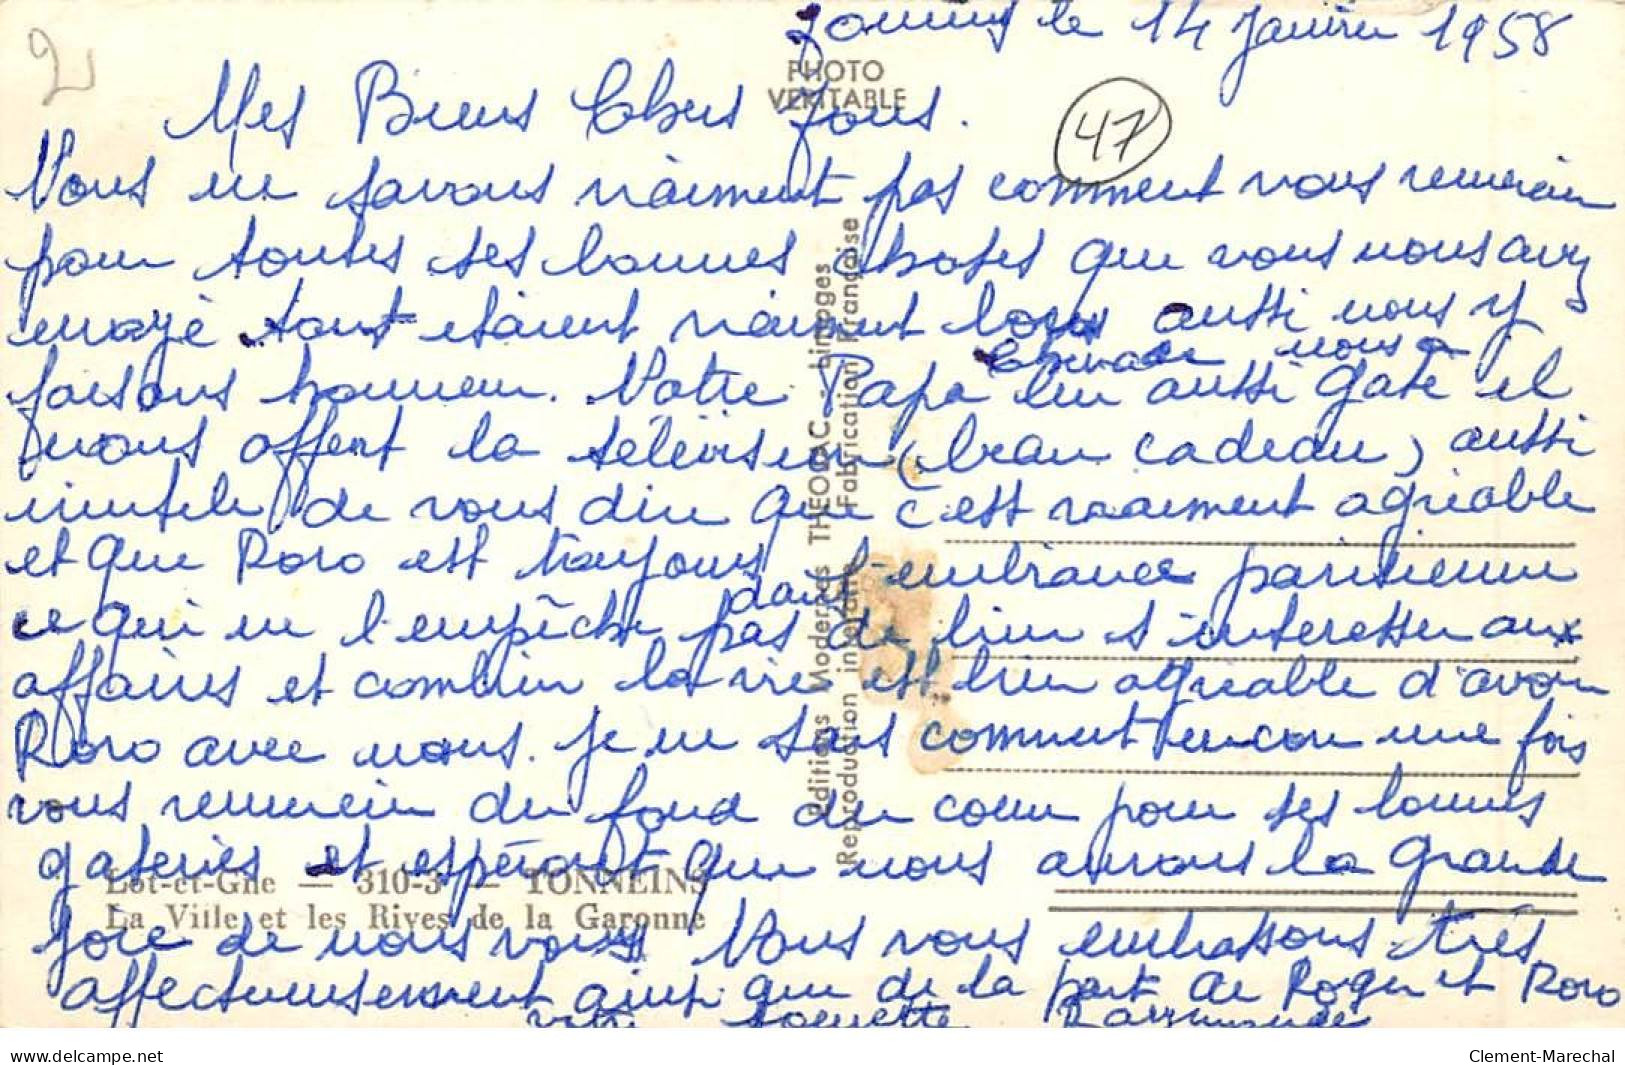 le 14 Janvier 1958
PHOTO
VERITABLE
47
Mes Biens Chers Tous.
Nous ne savons vraiment pas comment vous remercier
pour toutes ses bonnes choses que vous nous avez
envoyé tout etaient vraiment bons aussi nous y
faisons honneur. Notre Papa lui aussi gate il
nous a
nous offert la télévision (beau cadeau) aussi
inutile de vous dire que c'est vraiment agréable
et que Roro est toujours dans l'embiance parisienne
ce qui ne l'empêche pas de bien s'interesser aux
affaires et combien la vie est bien agréable d'avoir
Roro avec nous. Je ne sais comment encore une fois
vous remercier du fond du coeur pour ses bonnes
gateries et espérant que nous aurons la grande
joie de vous voir Nous vous embrassons très
affectueusement ainsi que de la part de Roger et Roro
votre Raymonde
Editions Modernes THEOJAC - Limoges
Reproduction interdite Fabrication Française
Lot-et-Gne — 310-3 — TONNEINS
La Ville et les Rives de la Garonne
www.delcampe.net
Clement-Marechal